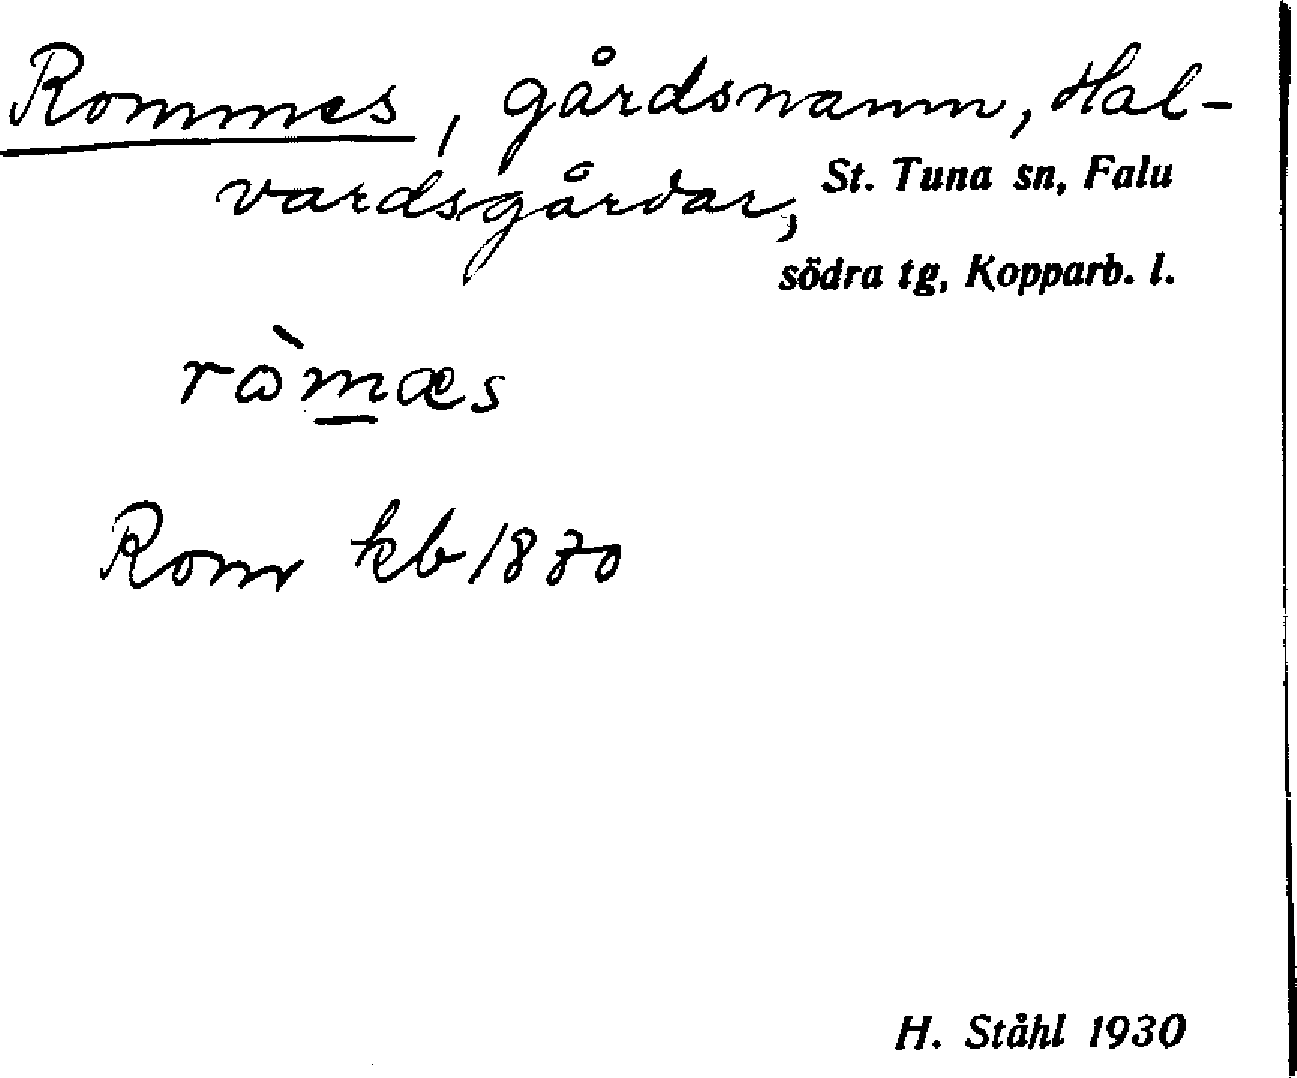 Rommes, gårdsnamn, Hal-
vardsgårdar, St. Tuna sn, Falu
södra tg, Kopparb. l.
rɷ̀m̲æs
Rom kb 1870
H. Ståhl 1930